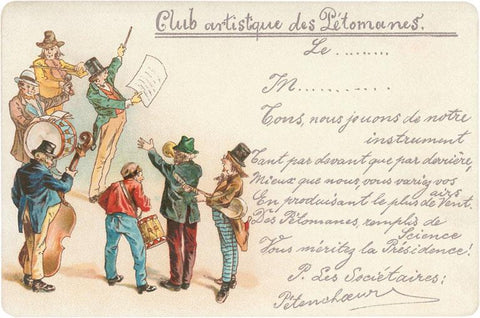 Club artistque des Pétomanes.
Le ........
M..........
Tous, nous jouons de notre
instrument
Tant par devant que par derrière,
Mieux que nous, vous variez vos
airs
En produisant le plus de Vent.
Des Pétomanes, remplis de
Science
Vous méritez la Présidence!
P. Les Sociétaires:
Pétenchoeur